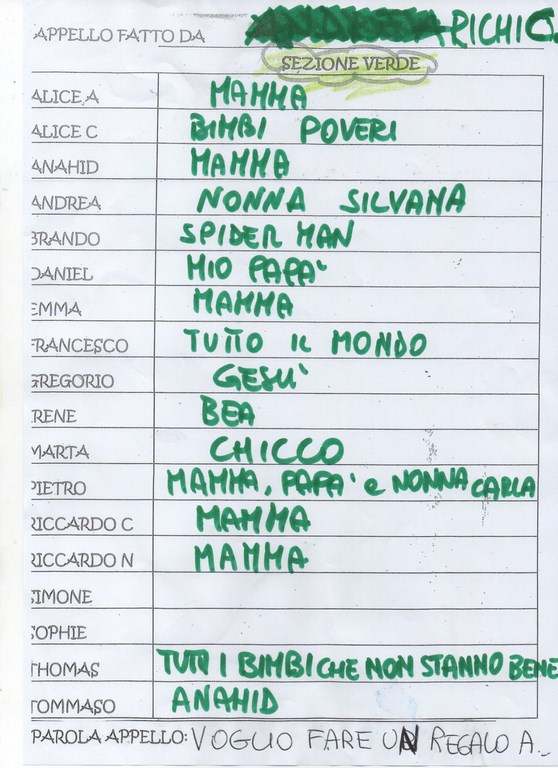 APPELLO FATTO DA RICHI C.
SEZIONE VERDE
ALICE A MAMMA
ALICE C BIMBI POVERI
ANAHID MAMMA
ANDREA NONNA SILVANA
BRANDO SPIDER MAN
DANIEL MIO PAPA'
EMMA MAMMA
FRANCESCO TUTTO IL MONDO
GREGORIO GESU'
IRENE BEA
MARTA CHICCO
PIETRO MAMMA, PAPA' e NONNA CARLA
RICCARDO C MAMMA
RICCARDO N MAMMA
SIMONE
SOPHIE
THOMAS TUTTI I BIMBI CHE NON STANNO BENE
TOMMASO ANAHID
PAROLA APPELLO: VOGLIO FARE UN REGALO A...